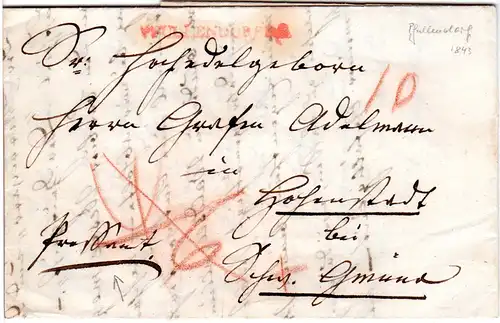 PFULLENDORF
Pfullendorf
1843
Sr: Hochedelgeborn
10
Herrn Grafen Adelmann
in
Hohenstadt
bei
Pressant.
Schw. Gmünd